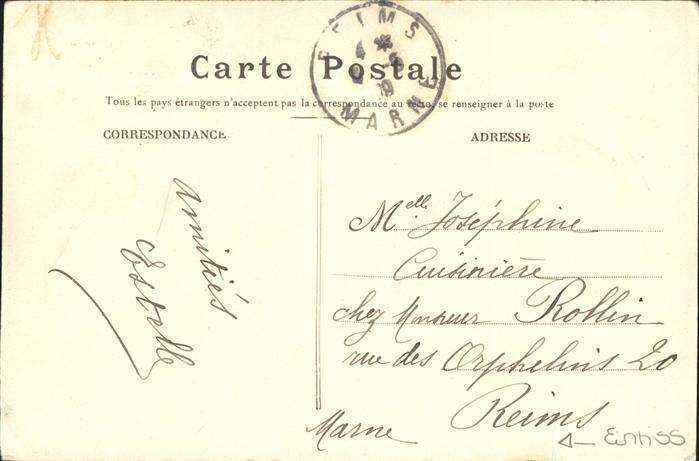 REIMS
MARNE
Carte Postale
Tous les pays étrangers n'acceptent pas la correspondance au recto, se renseigner à la poste
CORRESPONDANCE
ADRESSE
Amitiés
Estelle
Melle Joséphine
Cuisinière
chez Monsieur Rollin
rue des Orphelins 20
Reims
Marne